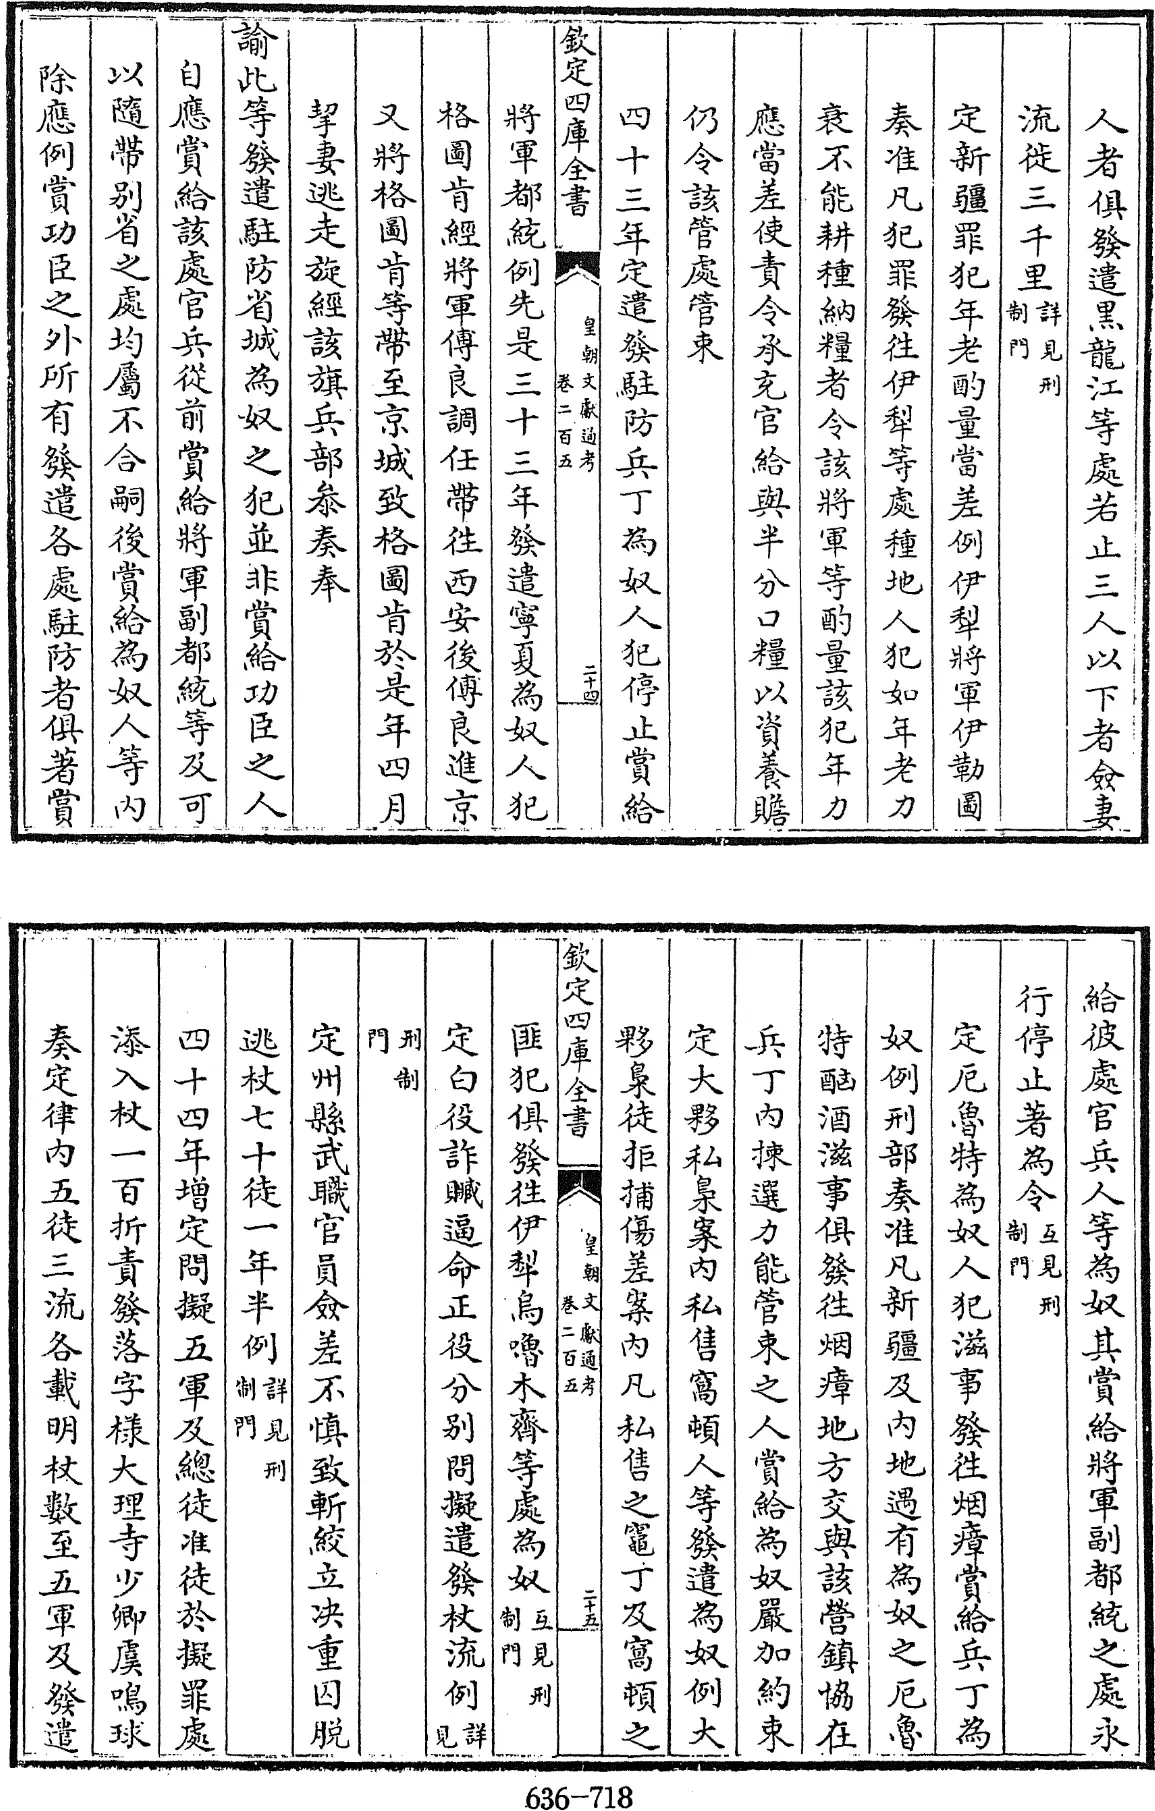 人者俱發遣黑龍江等處若止三人以下者僉妻
流徙三千里詳見刑制門
定新疆罪犯年老酌量當差例伊犂將軍伊勒圖
奏准凡犯罪發往伊犂等處種地人犯如年老力
衰不能耕種納糧者令該將軍等酌量該犯年力
應當差使責令承充官給與半分口糧以資養贍
仍令該管處管束
四十三年定遣發駐防兵丁為奴人犯停止賞給
欽定四庫全書 皇朝文獻通考 卷二百五 二十四
將軍都統例先是三十三年發遣寧夏為奴人犯
格圖肯經將軍傅良調任帶往西安後傅良進京
又將格圖肯等帶至京城致格圖肯於是年四月
挈妻逃走旋經該旗兵部叅奏奉
諭此等發遣駐防省城為奴之犯並非賞給功臣之人
自應賞給該處官兵從前賞給將軍副都統等及可
以隨帶别省之處均屬不合嗣後賞給為奴人等内
除應例賞功臣之外所有發遣各處駐防者俱著賞
給彼處官兵人等為奴其賞給將軍副都統之處永
行停止著為令互見刑制門
定厄魯特為奴人犯滋事發往烟瘴賞給兵丁為
奴例刑部奏准凡新疆及内地遇有為奴之厄魯
特酗酒滋事俱發往烟瘴地方交與該營鎮協在
兵丁内揀選力能管束之人賞給為奴嚴加約束
定大夥私梟案内私售窩頓人等發遣為奴例大
夥梟徒拒捕傷差案内凡私售之竈丁及窩頓之
欽定四庫全書 皇朝文獻通考 卷二百五 二十五
匪犯俱發往伊犂烏嚕木齊等處為奴互見刑制門
定白役詐贓逼命正役分别問擬遣發杖流例詳見
刑制門
定州縣武職官員僉差不慎致斬絞立决重囚脱
逃杖七十徒一年半例詳見刑制門
四十四年增定問擬五軍及總徒准徒於擬罪處
添入杖一百折責發落字様大理寺少卿虞鳴球
奏定律内五徒三流各載明杖數至五軍及發遣
636-718